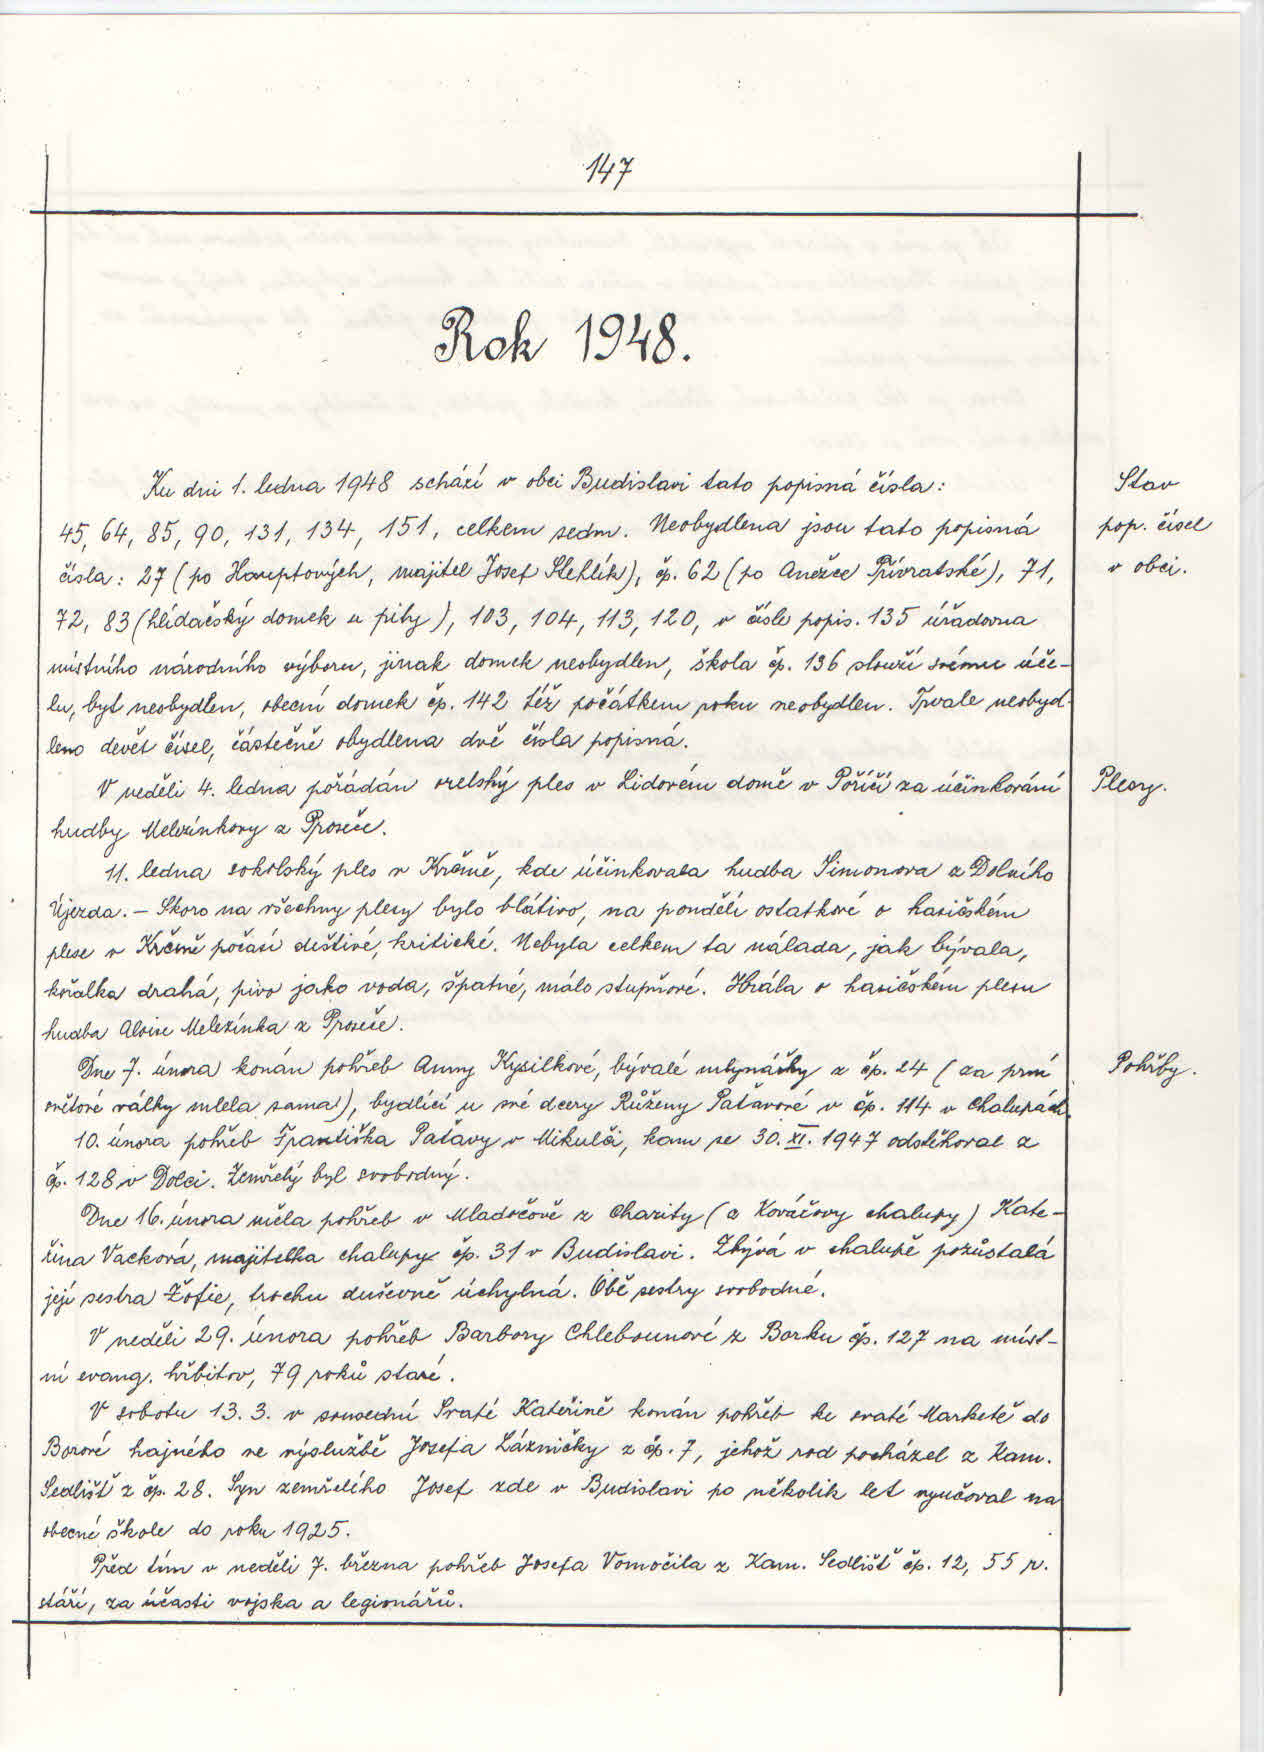 147
Rok 1948.
Ku dni 1. ledna 1948 schází v obci Budislavi tato popisná čísla:
Stav
45, 64, 85, 90, 131, 134, 151, celkem sedm. Neobydlena jsou tato popisná
pop. čísel
čísla: 27 (po Hauptových, majitel Josef Stehlík), čp. 62 (po Anežce Přívratské), 71,
v obci.
72, 83 (hlídačský domek u pily), 103, 104, 113, 120, v čísle popis. 135 úřadovna
místního národního výboru, jinak domek neobydlen, škola čp. 136 slouží svému úče-
lu, byt neobydlen, obecní domek čp. 142 též počátkem roku neobydlen. Trvale neobyd-
leno devět čísel, částečně obydlena dvě čísla popisná.
V neděli 4. ledna pořádán orelský ples v Lidovém domě v Poříčí za účinkování
Plesy.
hudby Melezínkovy z Proseče.
11. ledna sokolský ples v Krčmě, kde účinkovala hudba Simonova z Dolního
Újezda. – Skoro na všechny plesy bylo blátivo, na pondělí ostatkové o hasičském
plese v Krčmě počasí deštivé, kritické. Nebyla celkem ta nálada, jak bývala,
kořalka drahá, pivo jako voda, špatné, málo stupňové. Hrála o hasičském plesu
hudba Aloise Melezínka z Proseče.
Dne 7. února konán pohřeb Anny Kysilkové, bývalé mlynářky z čp. 24 (za prvé
Pohřby.
světové války mlela sama), bydlící u své dcery Růženy Paťavové v čp. 114 v Chalupách.
10. února pohřeb Františka Paťavy v Mikulči, kam se 30. XI. 1947 odstěhoval z
čp. 128 v Dolci. Zemřelý byl svobodný.
Dne 16. února měla pohřeb v Mladočově z Charity (z Kováčovy chalupy) Kate-
řina Vacková, majitelka chalupy čp. 31 v Budislavi. Zbývá v chalupě pozůstalá
její sestra Žofie, trochu duševně úchylná. Obě sestry svobodné.
V neděli 29. února pohřeb Barbory Chlebounové z Borku čp. 127 na míst-
ní evang. hřbitov, 79 roků staré.
V sobotu 13. 3. v sousední Svaté Kateřině konán pohřeb ke svaté Marketě do
Borové hajného ve výslužbě Josefa Lázničky z čp. 7, jehož rod pocházel z Kam.
Sedlišť z čp. 28. Syn zemřelého Josef zde v Budislavi po několik let vyučoval na
obecné škole do roku 1925.
Před tím v neděli 7. března pohřeb Josefa Vomočila z Kam. Sedlišť čp. 12, 55 r.
stáří, za účasti vojska a legionářů.